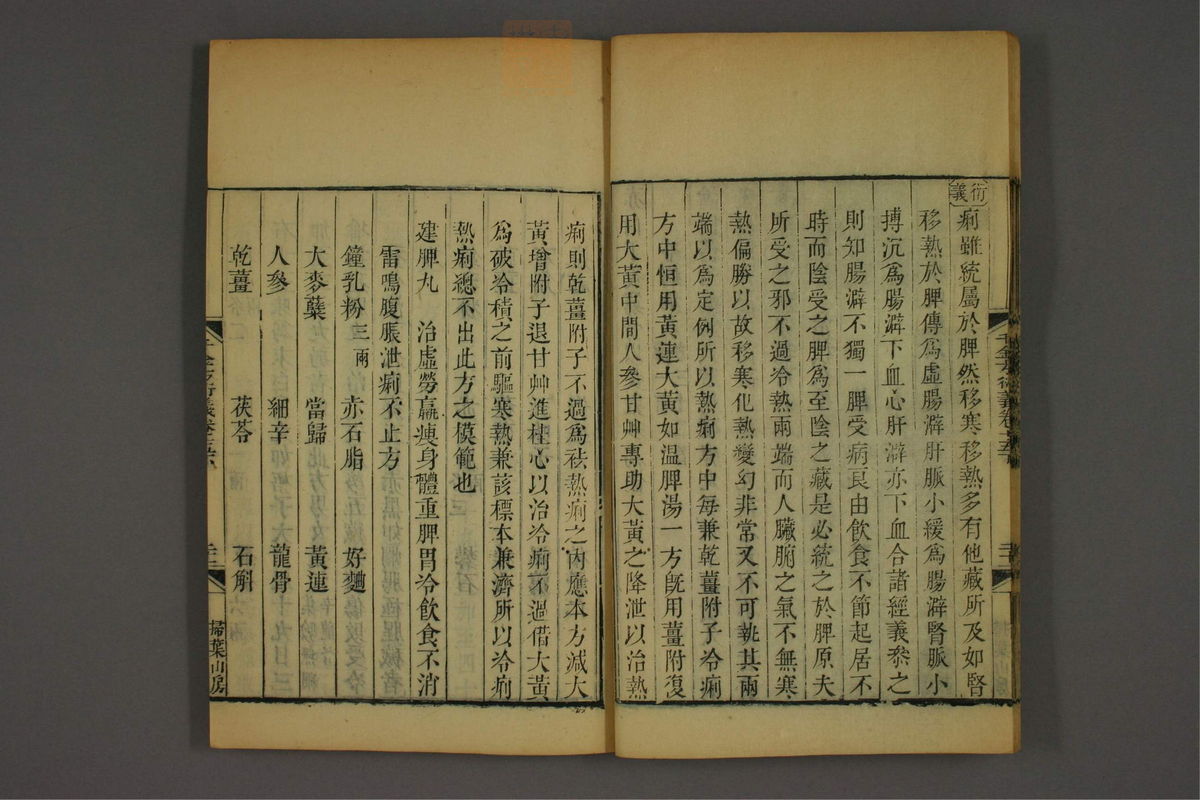 衍義
痢雖統屬於脾然移寒移熱多有他藏所及如腎
移熱於脾傳爲虛腸澼肝脈小緩爲腸澼腎脈小
搏沉爲腸澼下血心肝澼亦下血合諸經義叅之
則知腸澼不獨一脾受病良由飲食不節起居不
時而陰受之脾爲至陰之藏是必統之於脾原夫
所受之邪不過冷熱兩端而人臟腑之氣不無寒
熱偏勝以故移寒化熱變幻非常又不可執其兩
端以爲定例所以熱痢方中每兼乾薑附子冷痢
方中恒用黃連大黃如溫脾湯一方旣用薑附復
用大黃中間人參甘艸專助大黃之降泄以治熱
痢則乾薑附子不過爲祛熱痢之內應本方減大
黃增附子退甘艸進桂心以治冷痢不過借大黃
爲破冷積之前驅寒熱兼該標本兼濟所以冷痢
熱痢總不出此方之模範也
建脾丸　治虛勞羸瘦身體重脾胃冷飲食不消
雷鳴腹脹泄痢不止方
鐘乳粉三兩　赤石脂　好麯
大麥蘗　當歸　黃連
人參　細辛　龍骨
乾薑　茯苓　石斛
千金方衍義卷
掃葉山房